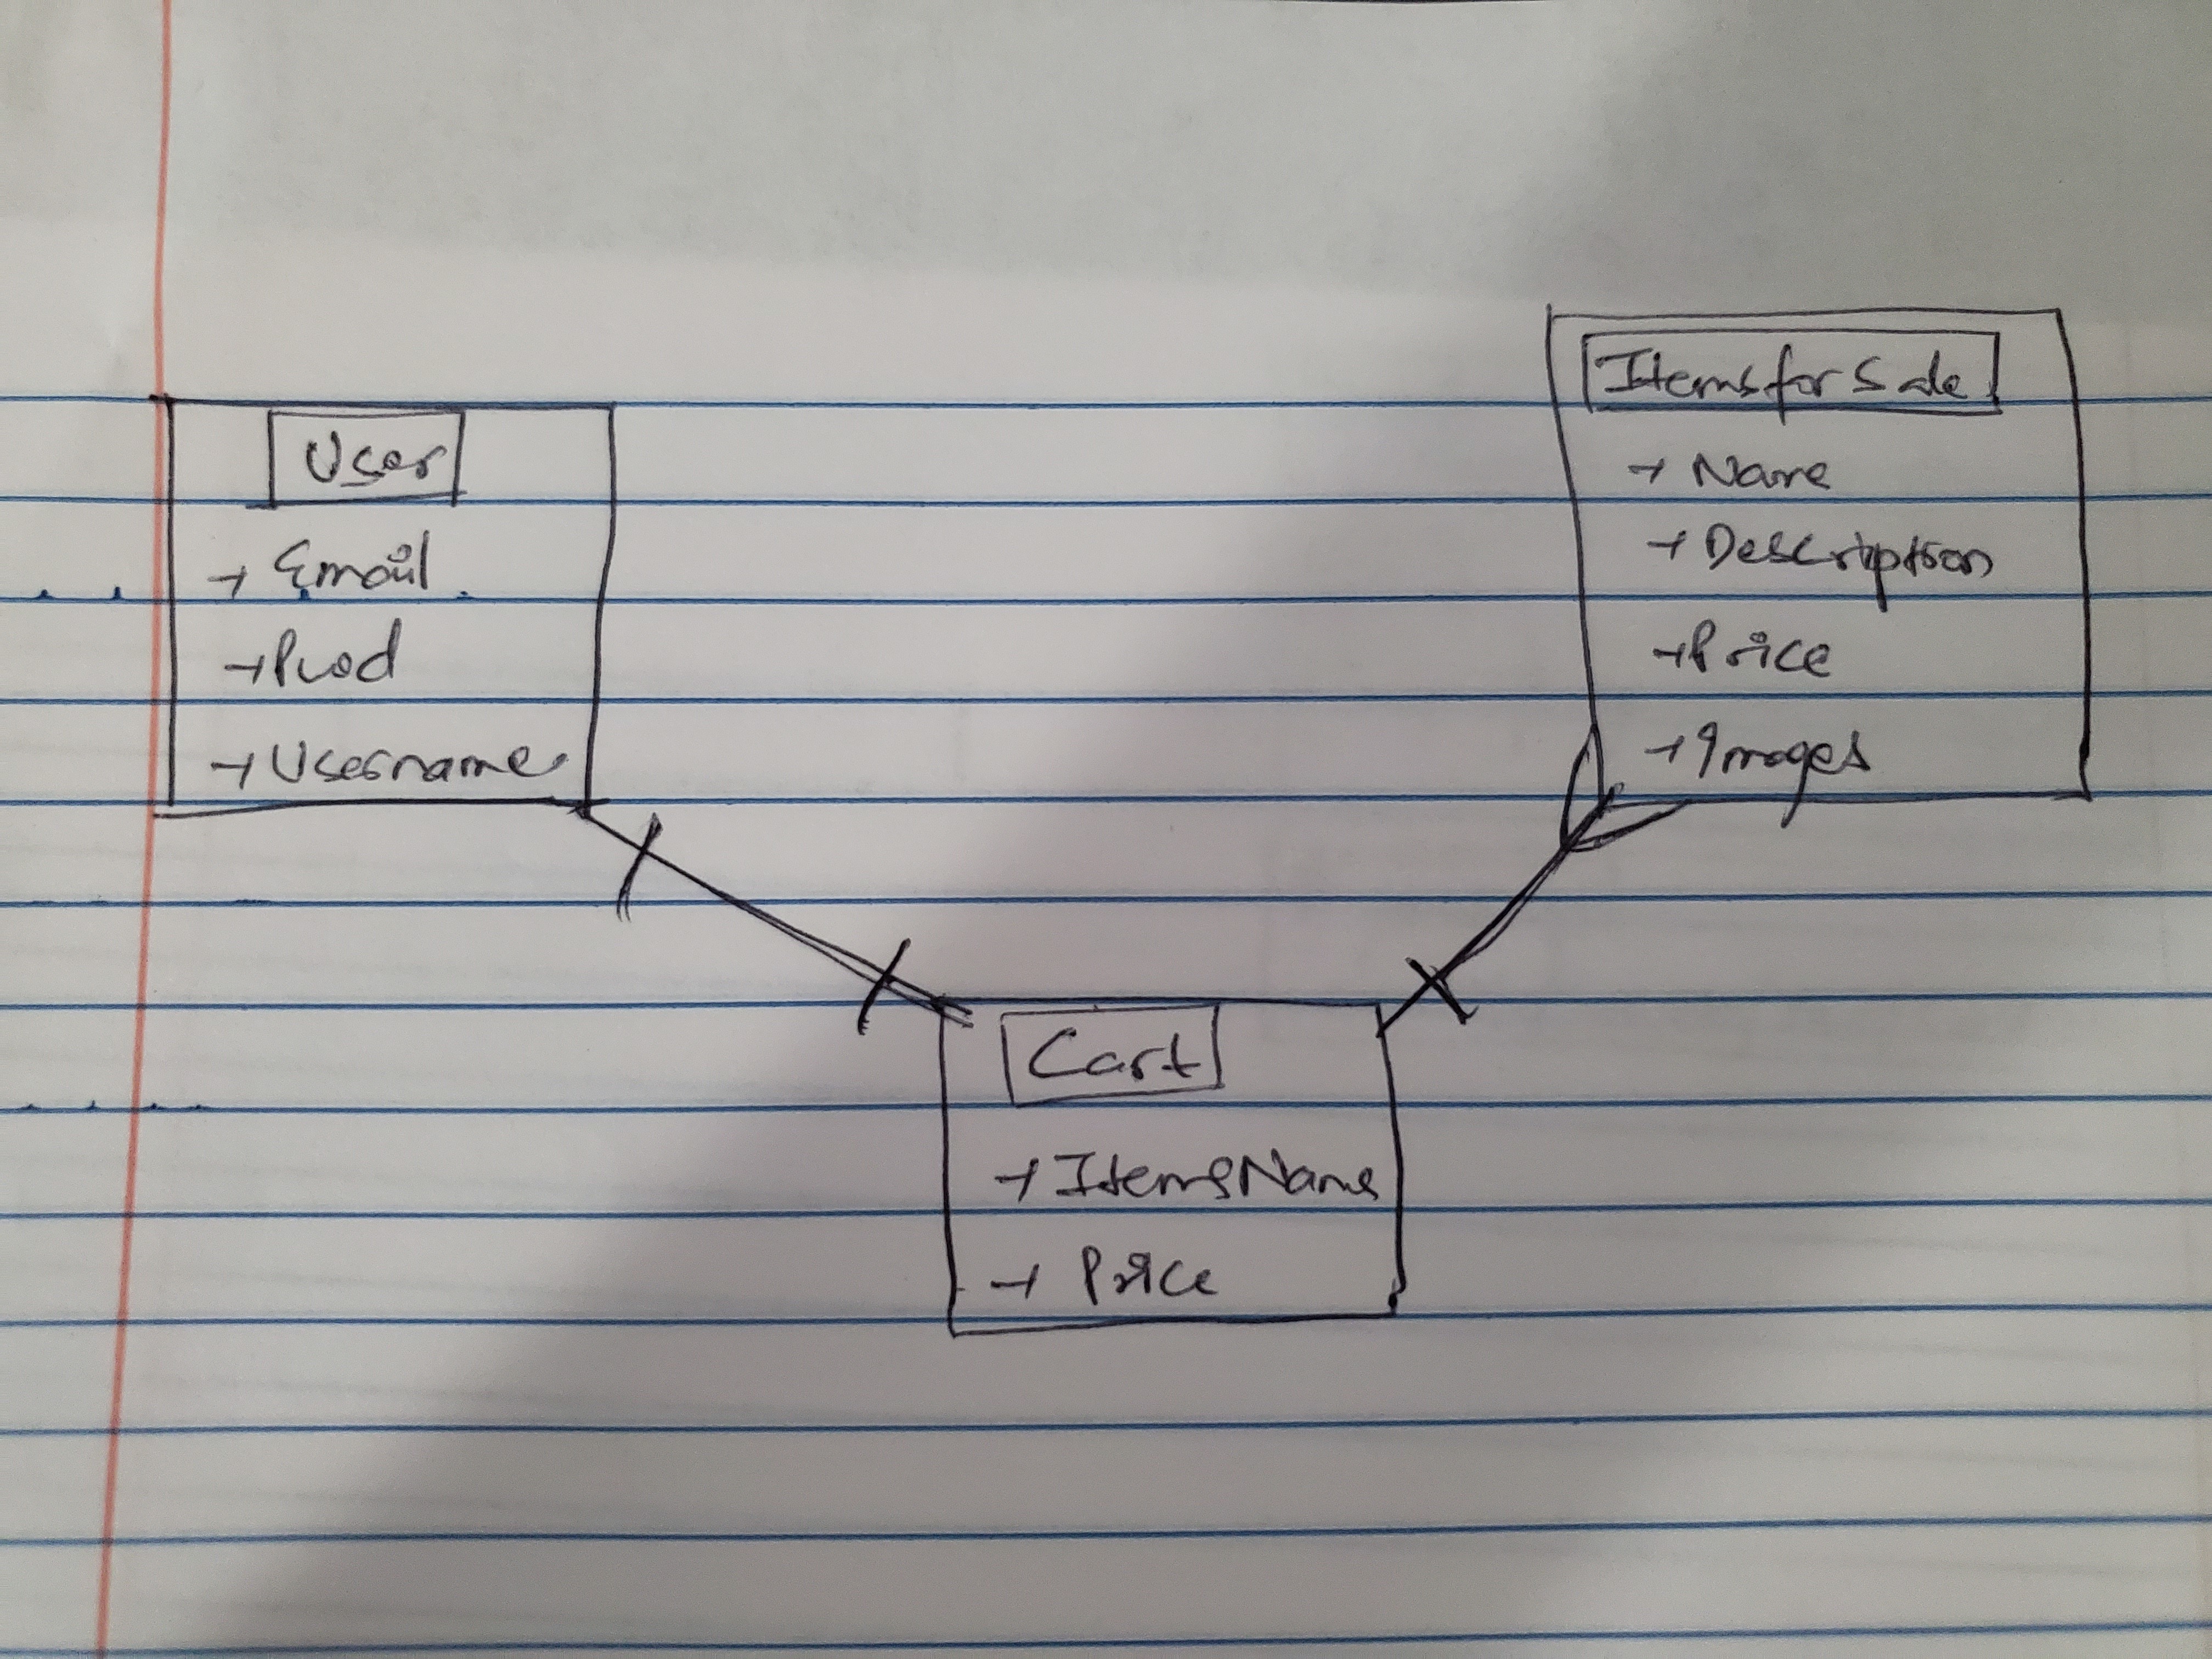 User
→ Email
→ Pwod
→ Username
Items for Sale
→ Name
→ Description
→ Price
→ Images
Cart
→ ItemsName
→ Price